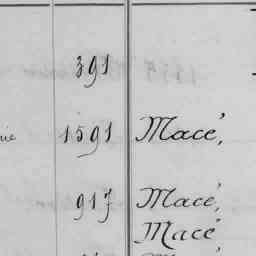 391
1591 Macé,
917 Macé,
Macé